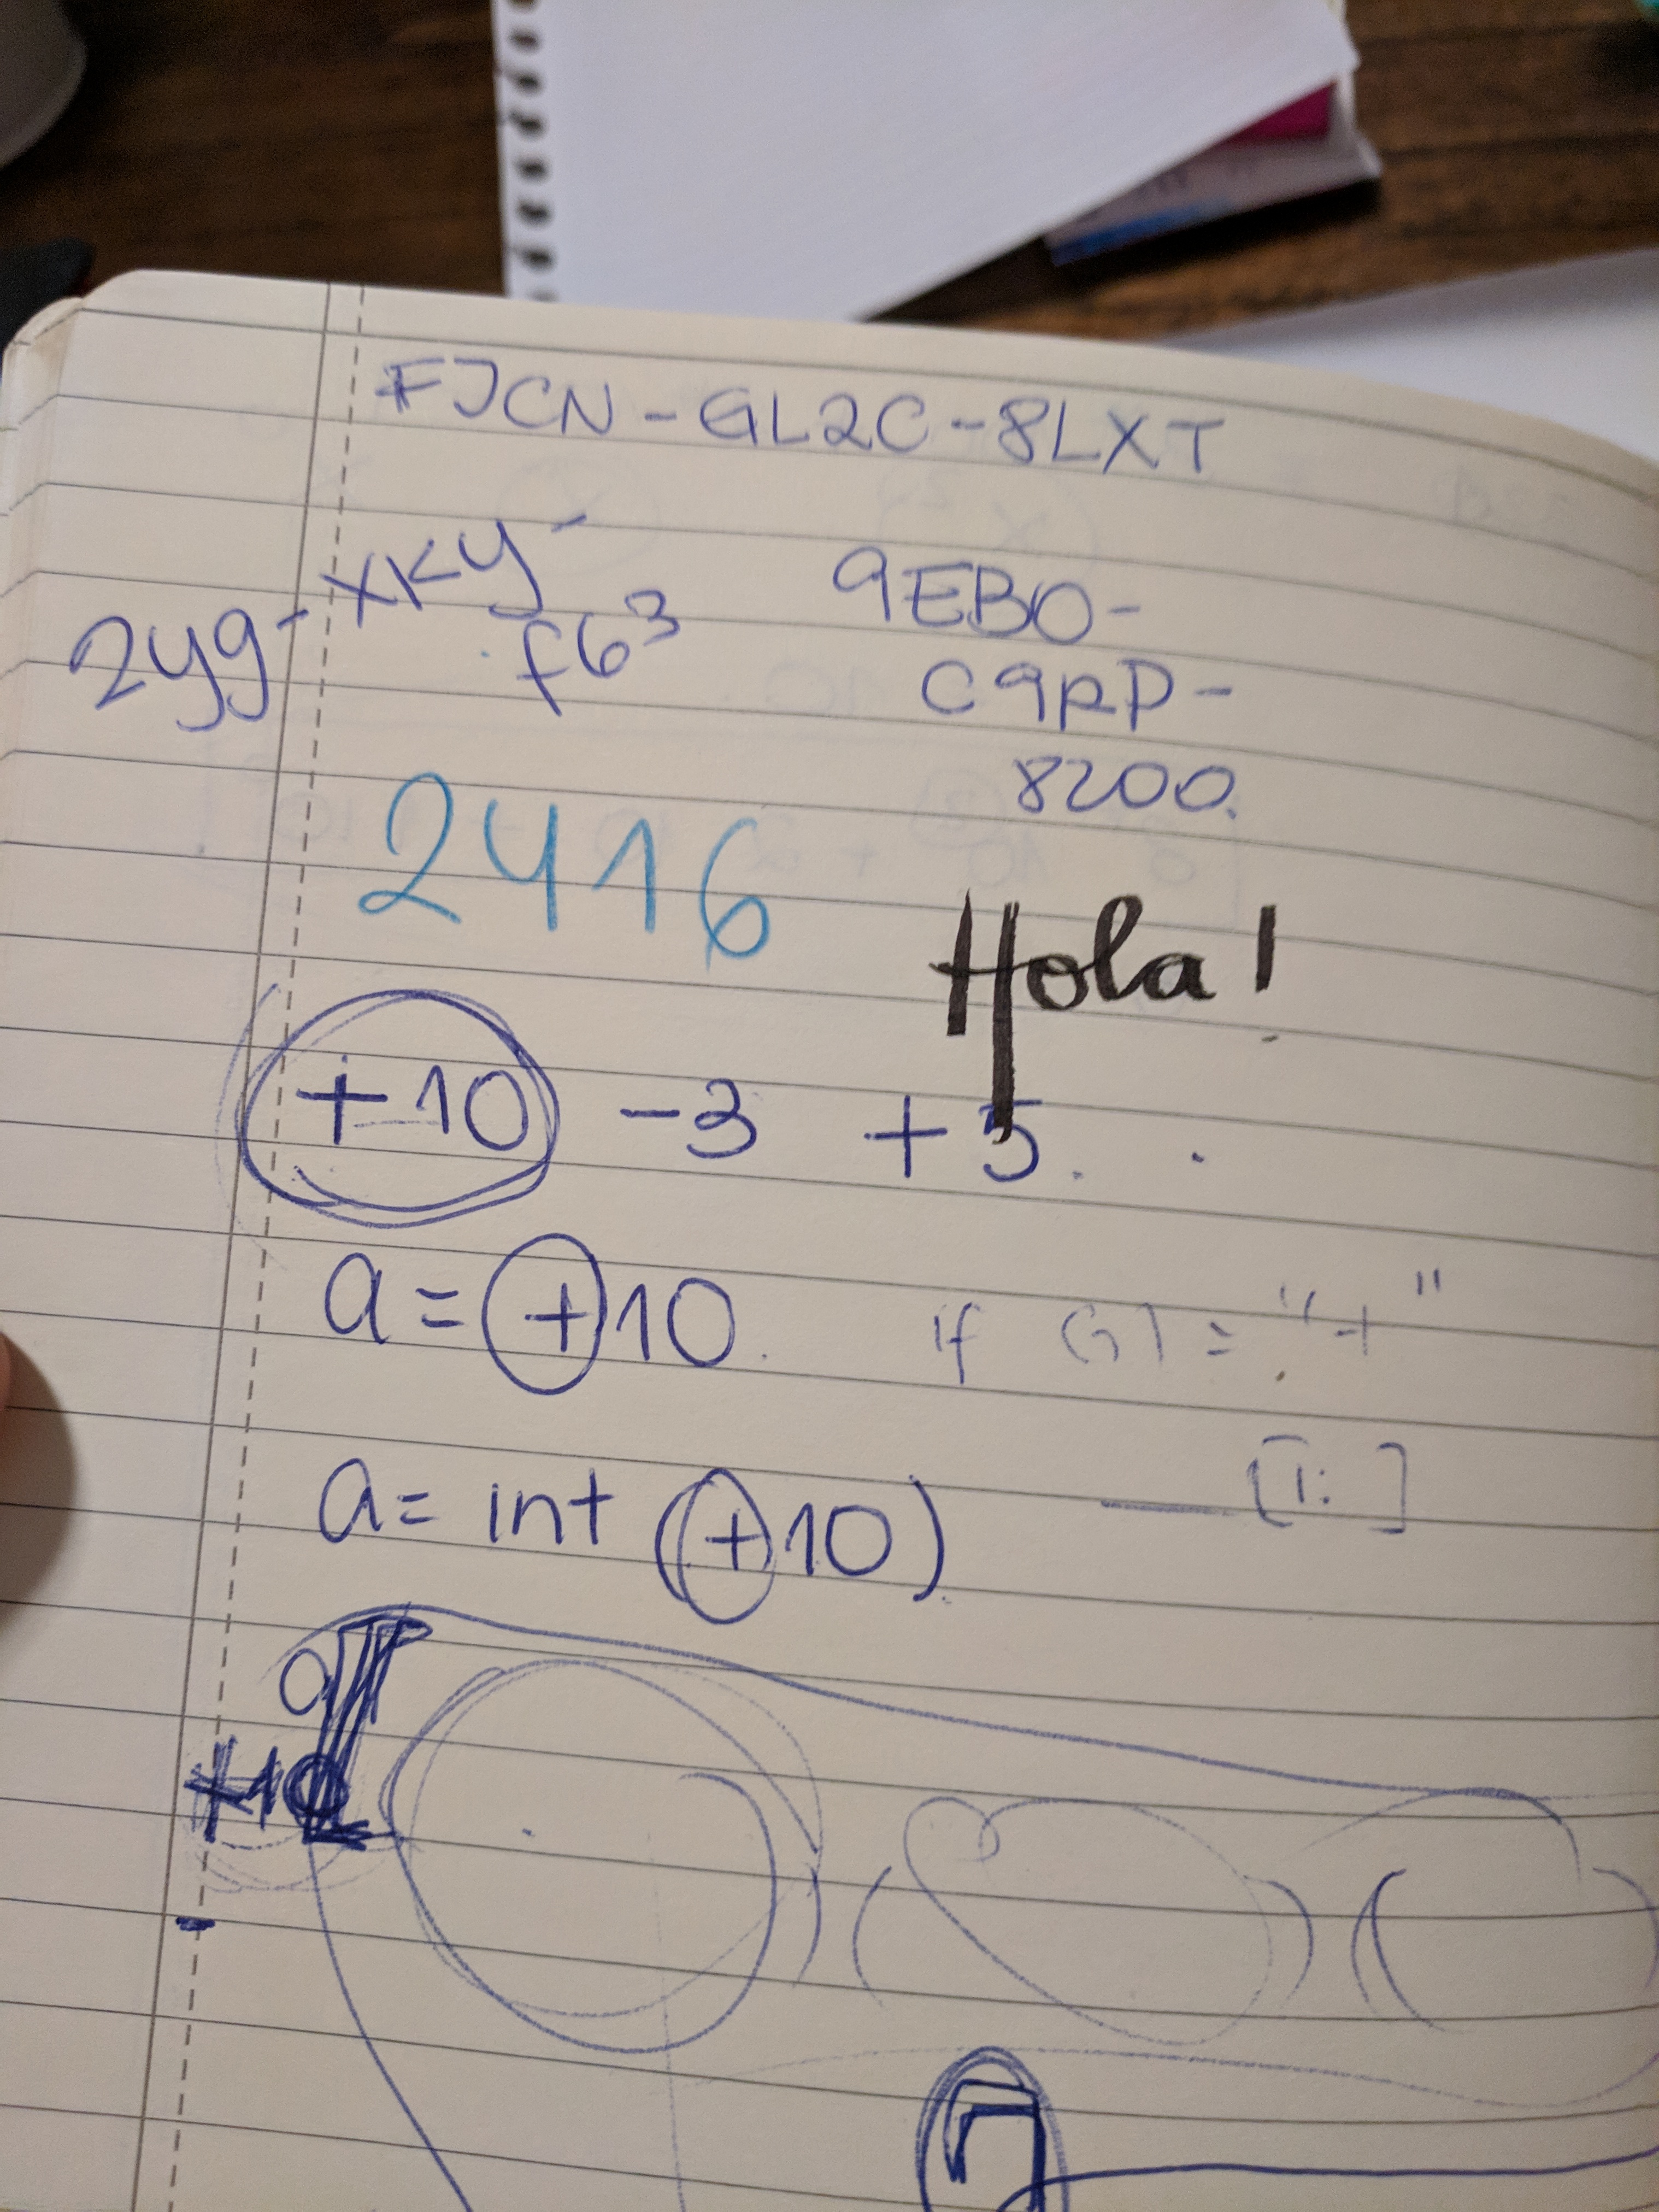 FJCN-GL2C-8LXT
2yg-xKy-
f63
9EB0-
C9RP-
8200.
2416
Hola!
+10 -3 +5.
a=+10.
a= int (+10)
+10